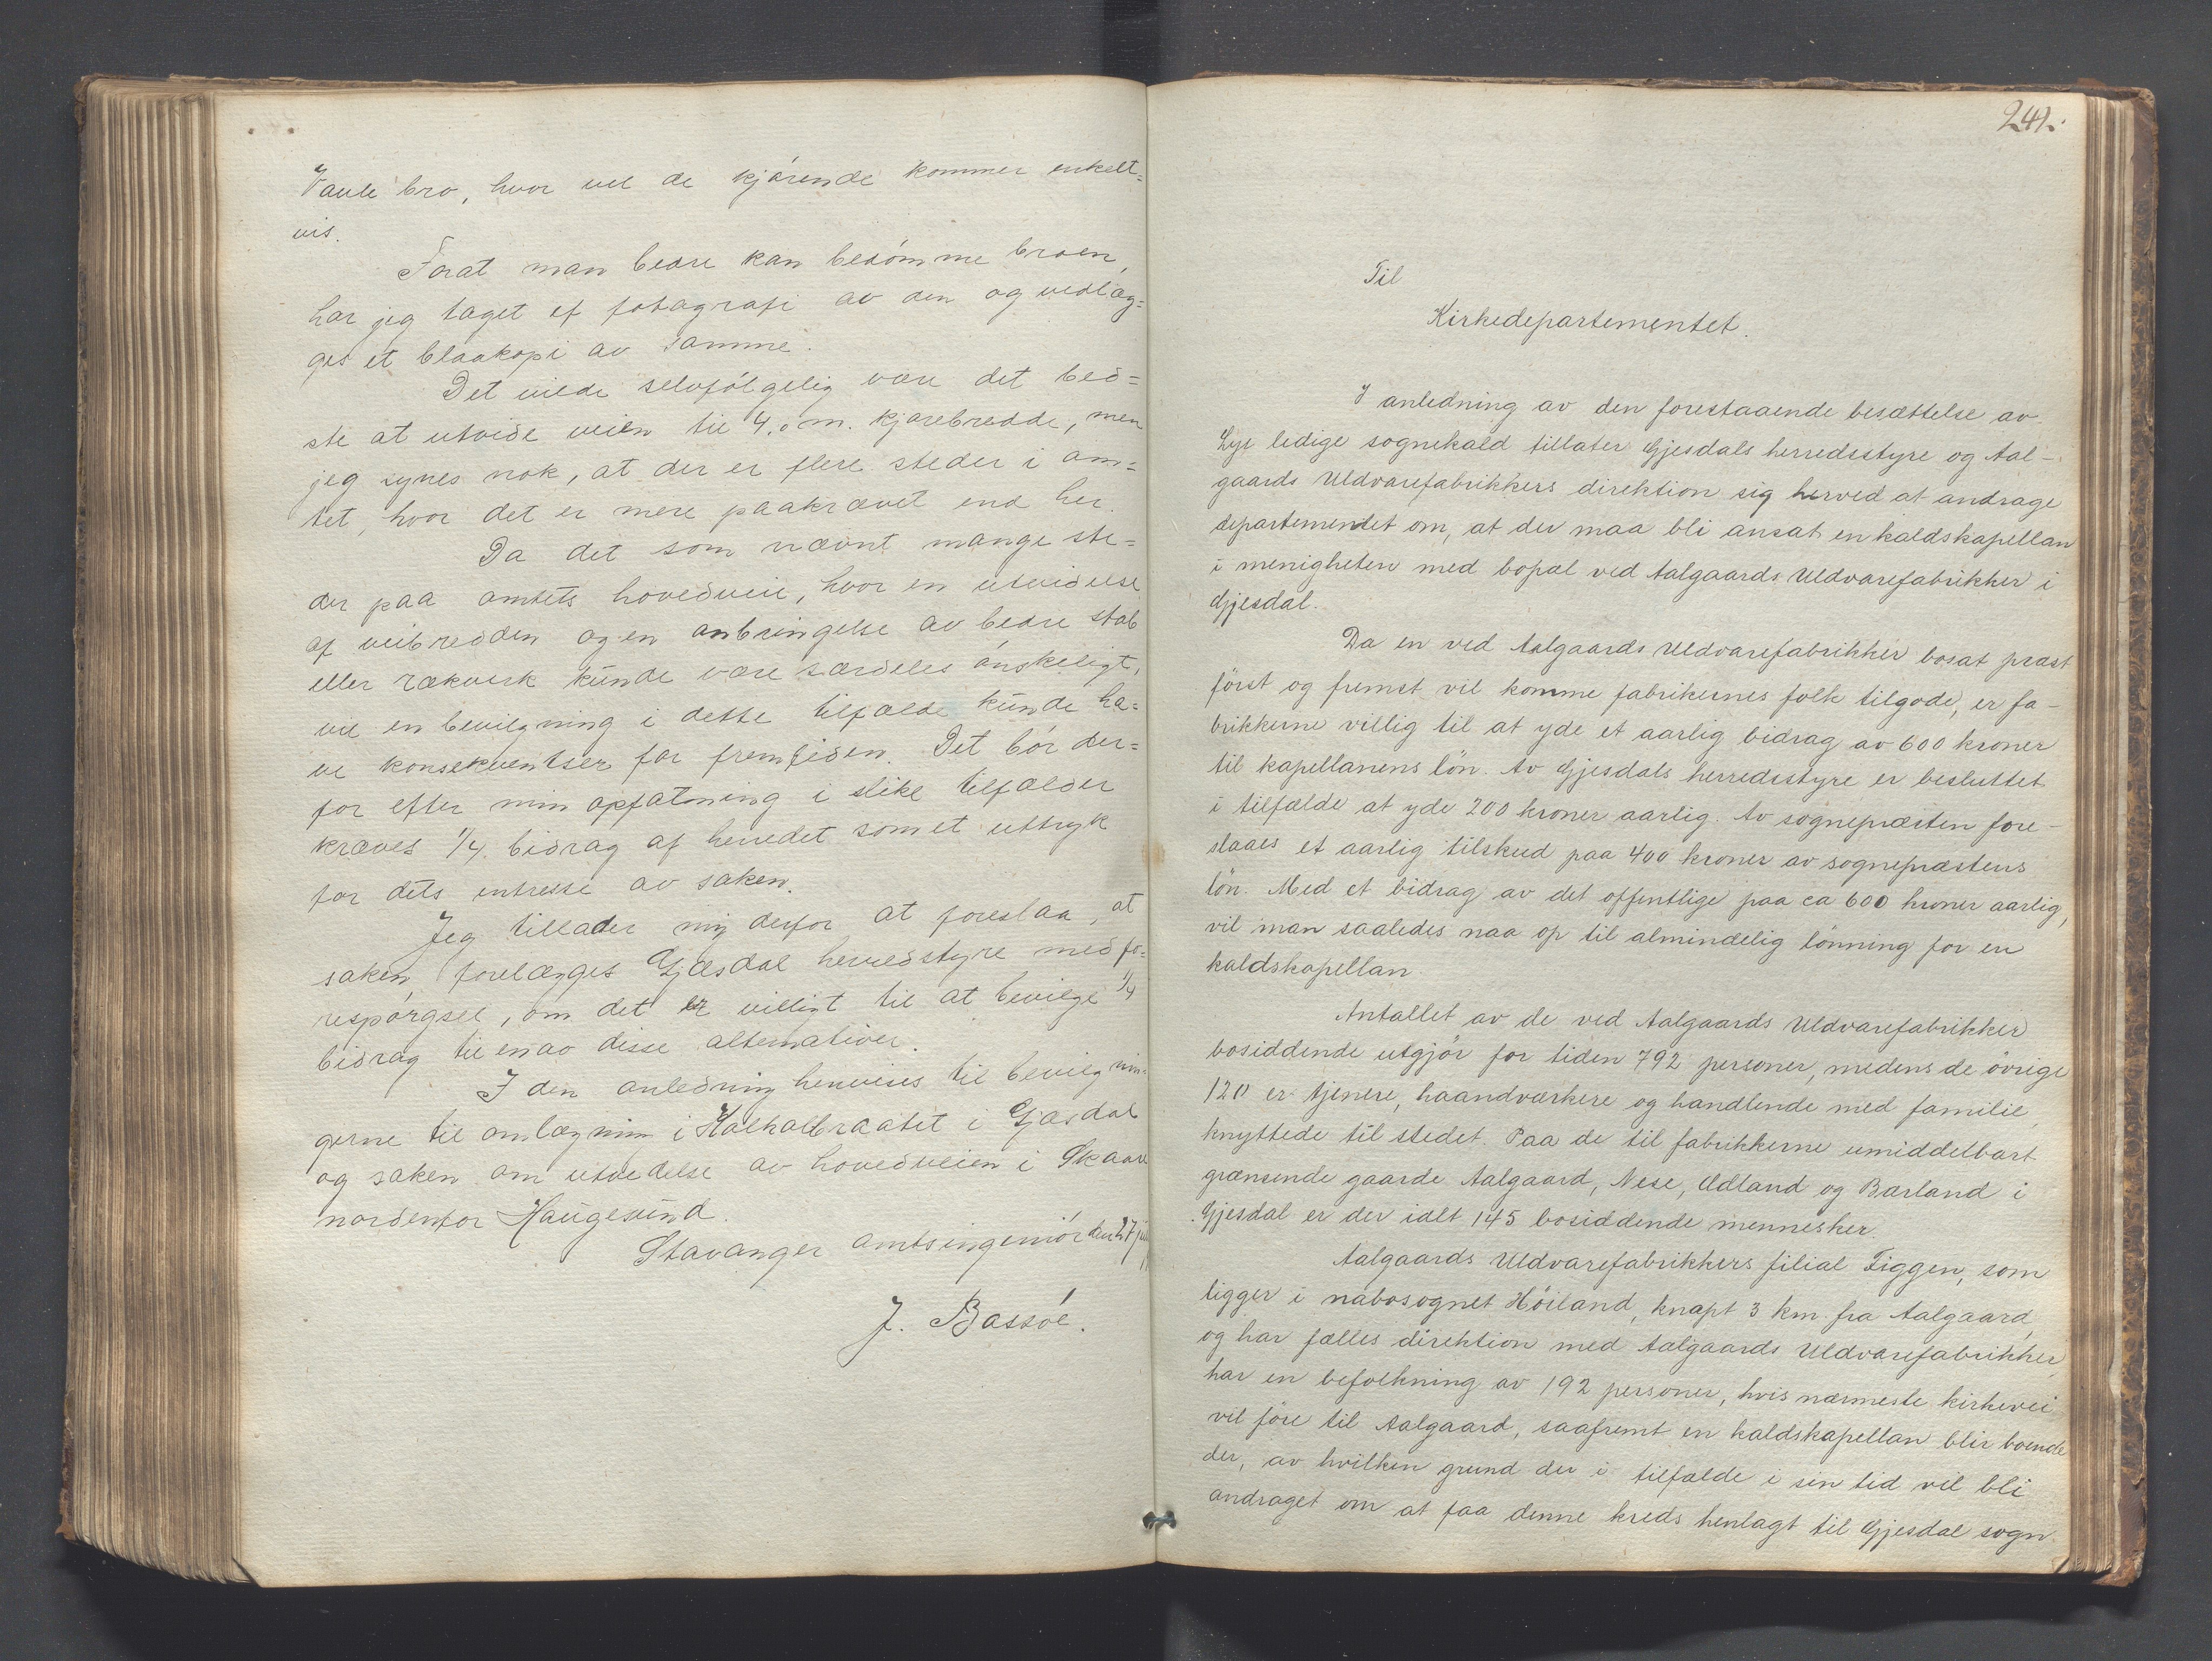 Vaule bro, hvor vel de kjørende kommer enkelt=
vis.
Forat man bedre kan bedømme broen,
har jeg taget et fotografi av den og vedlæg=
ges et blaakopi av samme.
Det vilde selvfølgelig være det bed=
ste at utvide veien til 4,0 m. kjørebredde, men
jeg synes nok, at der er flere steder i am=
tet, hvor det er mere paakrævet end her.
Da det som nævnt mange ste=
der paa amtets hovedveie, hvor en utvidelse
af veibredden og en anbringelse av bedre stab
eller rækverk kunde være særdeles ønskeligt,
vil en bevilgning i dette tilfælde kunde ha=
ve konsekventser for fremtiden. Det bør der=
for efter min opfatning i slike tilfælder
kræves 1/4. bidrag af herredet som et uttryk
for dets intresse av saken.
Jeg tillader mig derfor at foreslaa, at
saken forelægges Gjæsdal herredstyre med fo=
respørgsel, om det er villigt til at bevilge 1/4
bidrag til en av disse alternativer.
I den anledning henvises til bevilgnin=
gerne til omlægning i Kalhalbraatet i Gjæsdal
og saken om utvidelse av hovedveien i Skaare
nordenfor Haugesund.
Stavanger amtsingeniør den 27 juli
J. Bassøe.
241.
Til
Kirkedepartementet.
I anledning av den forestaaende besættelse av
Lye ledige sognekald tillater Gjesdals herredsstyre og Aal-
gaards Uldvarefabrikkers direktion sig herved at andrage
departementet om, at der maa bli ansat en kaldskapellan
i menigheten med bopæl ved Aalgaards Uldvarefabrikker i
Gjesdal.
Da en ved Aalgaards Uldvarefabrikker bosat præst
først og fremst vil komme fabrikernes folk tilgode, er fa-
brikkerne villig til at yde et aarlig bidrag av 600 kroner
til kapellanens løn. Av Gjesdals herredsstyre er besluttet
i tilfælde at yde 200 kroner aarlig. Av sognepræsten fore-
slaaes et aarlig tilskud paa 400 kroner av sognepræstens
løn. Med et bidrag av det offentlige paa ca 600 kroner aarlig,
vil man saaledes naa op til almindelig lønning for en
kaldskapellan.
Antallet av de ved Aalgaards Uldvarefabrikker
bosiddende utgjør for tiden 792 personer, medens de øvrige
120 er tjenere, haandværkere og handlende med familie,
knyttede til stedet. Paa de til fabrikkerne umiddelbart
grænsende gaarde Aalgaard, Nese, Ødland og Bærland i
Gjesdal er der ialt 145 bosiddende mennesker.
Aalgaards Uldvarefabrikkers filial Figgen, som
ligger i nabosognet Høiland, knapt 3 km fra Aalgaard,
og har fælles direktion med Aalgaards Uldvarefabrikker,
har en befolkning av 192 personer, hvis nærmeste kirkevei
vil føre til Aalgaard, saafremt en kaldskapellan blir boende
der, av hvilken grund der i tilfælde i sin tid vil bli
andraget om at faa denne kreds henlagt til Gjesdal sogn